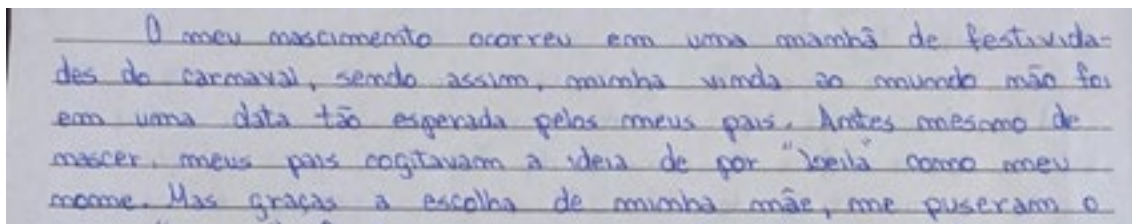 O meu nascimento ocorreu em uma manhã de festivida-
des do carnaval, sendo assim, minha vinda ao mundo não foi
em uma data tão esperada pelos meus pais. Antes mesmo de
nascer, meus pais cogitavam a ideia de por "Joeila" como meu
nome. Mas graças a escolha de minha mãe, me puseram o